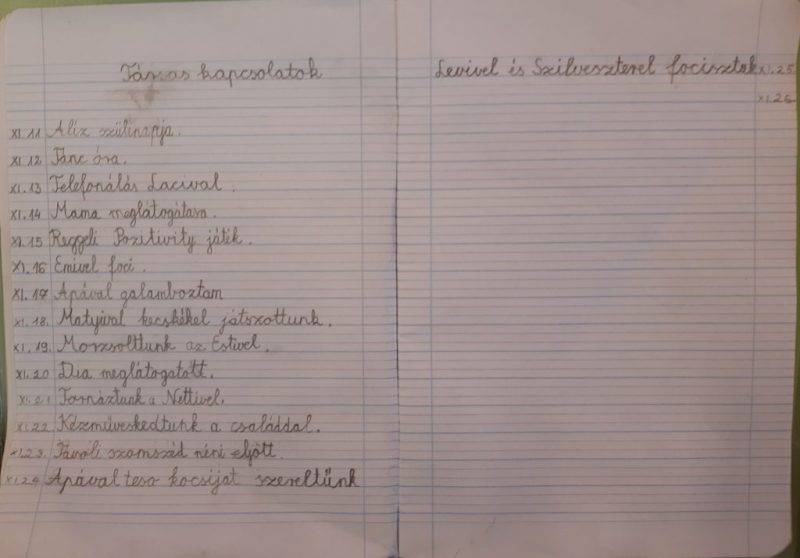 Társas kapcsolatok
XI. 11 Aliz szülinapja.
XI. 12 Tánc óra.
XI. 13 Telefonálás Lacival.
XI. 14 Mama meglátogátása.
XI. 15 Reggeli Pozitivity játék.
XI. 16 Emivel foci.
XI. 17 Apával galamboztam
XI. 18. Matyival kecskékel játszottunk.
XI. 19. Morzsoltunk az Estivel.
XI. 20 Dia meglátogatott.
XI. 21 Tornáztunk a Nettivel.
XI. 22 Kézműveskedtunk a családdal.
XI. 23. Távoli szomszéd néni eljött.
XI. 24 Apával teso kocsiját szereltünk
Levivel és Szilveszterel focisztok XI. 25
XI. 26